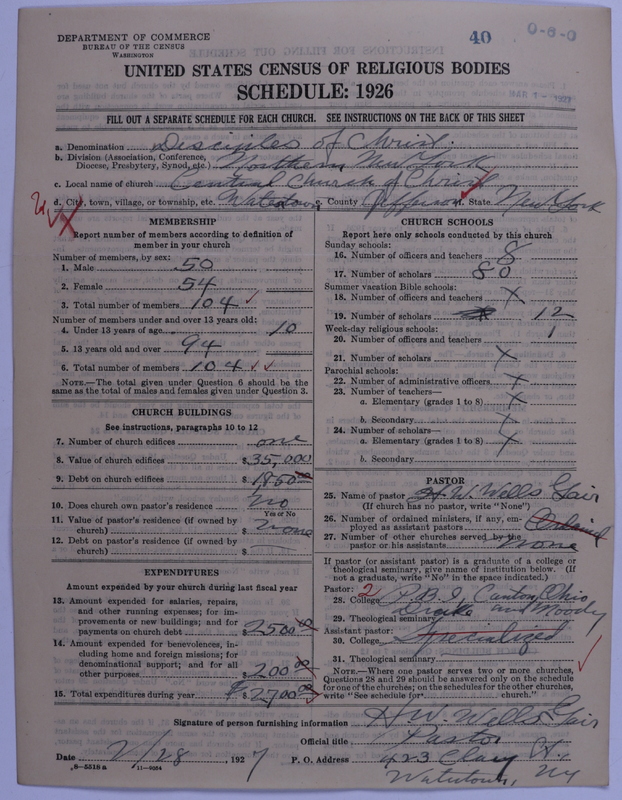 DEPARTMENT OF COMMERCE
BUREAU OF THE CENSUS
WASHINGTON
40
0-8-0
MAR 1 - 1927
UNITED STATES CENSUS OF RELIGIOUS BODIES
SCHEDULE: 1926
FILL OUT A SEPARATE SCHEDULE FOR EACH CHURCH. SEE INSTRUCTIONS ON THE BACK OF THIS SHEET
a. Denomination Disciples of Christ.
b. Division (Association, Conference, Diocese, Presbytery, Synod, etc.) Northern New York
c. Local name of church Central Church of Christ
d. City, town, village, or township, etc. Watertown e. County Jefferson f. State New York
MEMBERSHIP
Report number of members according to definition of
member in your church
Number of members, by sex:
1. Male 50
2. Female 54
3. Total number of members 104
Number of members under and over 13 years old:
4. Under 13 years of age 10
5. 13 years old and over 94
6. Total number of members 104
NOTE.—The total given under Question 6 should be
same as the total of males and females given under Question 3.
CHURCH BUILDINGS
See instructions, paragraphs 10 to 12
7. Number of church edifices one
8. Value of church edifices $35,000
9. Debt on church edifices $1850.00
10. Does church own pastor's residence? No
Yes or No
11. Value of pastor's residence (if owned by
church) $ None
12. Debt on pastor's residence (if owned by
church) $
EXPENDITURES
Amount expended by your church during last fiscal year
13. Amount expended for salaries, repairs,
and other running expenses; for im-
provements or new buildings; and for
payments on church debt $2500.00
14. Amount expended for benevolences, in-
cluding home and foreign missions; for
denominational support; and for all
other purposes $200.00
15. Total expenditures during year $2700.00
CHURCH SCHOOLS
Report here only schools conducted by this church
Sunday schools:
16. Number of officers and teachers 8
17. Number of scholars 80
Summer vacation Bible schools:
18. Number of officers and teachers X
19. Number of scholars 12
Week-day religious schools:
20. Number of officers and teachers 1
21. Number of scholars X
Parochial schools:
22. Number of administrative officers X
23. Number of teachers—
a. Elementary (grades 1 to 8) X
b. Secondary X
24. Number of scholars—
a. Elementary (grades 1 to 8) X
b. Secondary
PASTOR
25. Name of pastor H. W. Wells Gair
(If church has no pastor, write "None")
26. Number of ordained ministers, if any, em-
ployed as assistant pastors Ordained
27. Number of other churches served by the
pastor or his assistants None
If pastor (or assistant pastor) is a graduate of a college or
theological seminary, give name of institution below. (If
not a graduate, write "No" in the space indicated.)
Pastor: 2
28. College P.B.I., Canton, Ohio
Drake and Moody
29. Theological seminary
Assistant pastor: Specialized
30. College
31. Theological seminary
NOTE.—Where one pastor serves two or more churches,
Questions 28 and 29 should be answered only on the schedule
for one of the churches; on the schedules for the other churches,
write "See schedule for church."
Signature of person furnishing information H. W. Wells Gair
Official title Pastor
Date 2/28, 1927 P. O. Address 423 Clay St.
Watertown, NY
8—5518a 11—9054